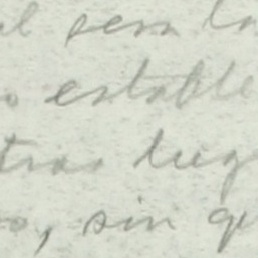 al sera la
o estable
tras lueg
os, sin qu